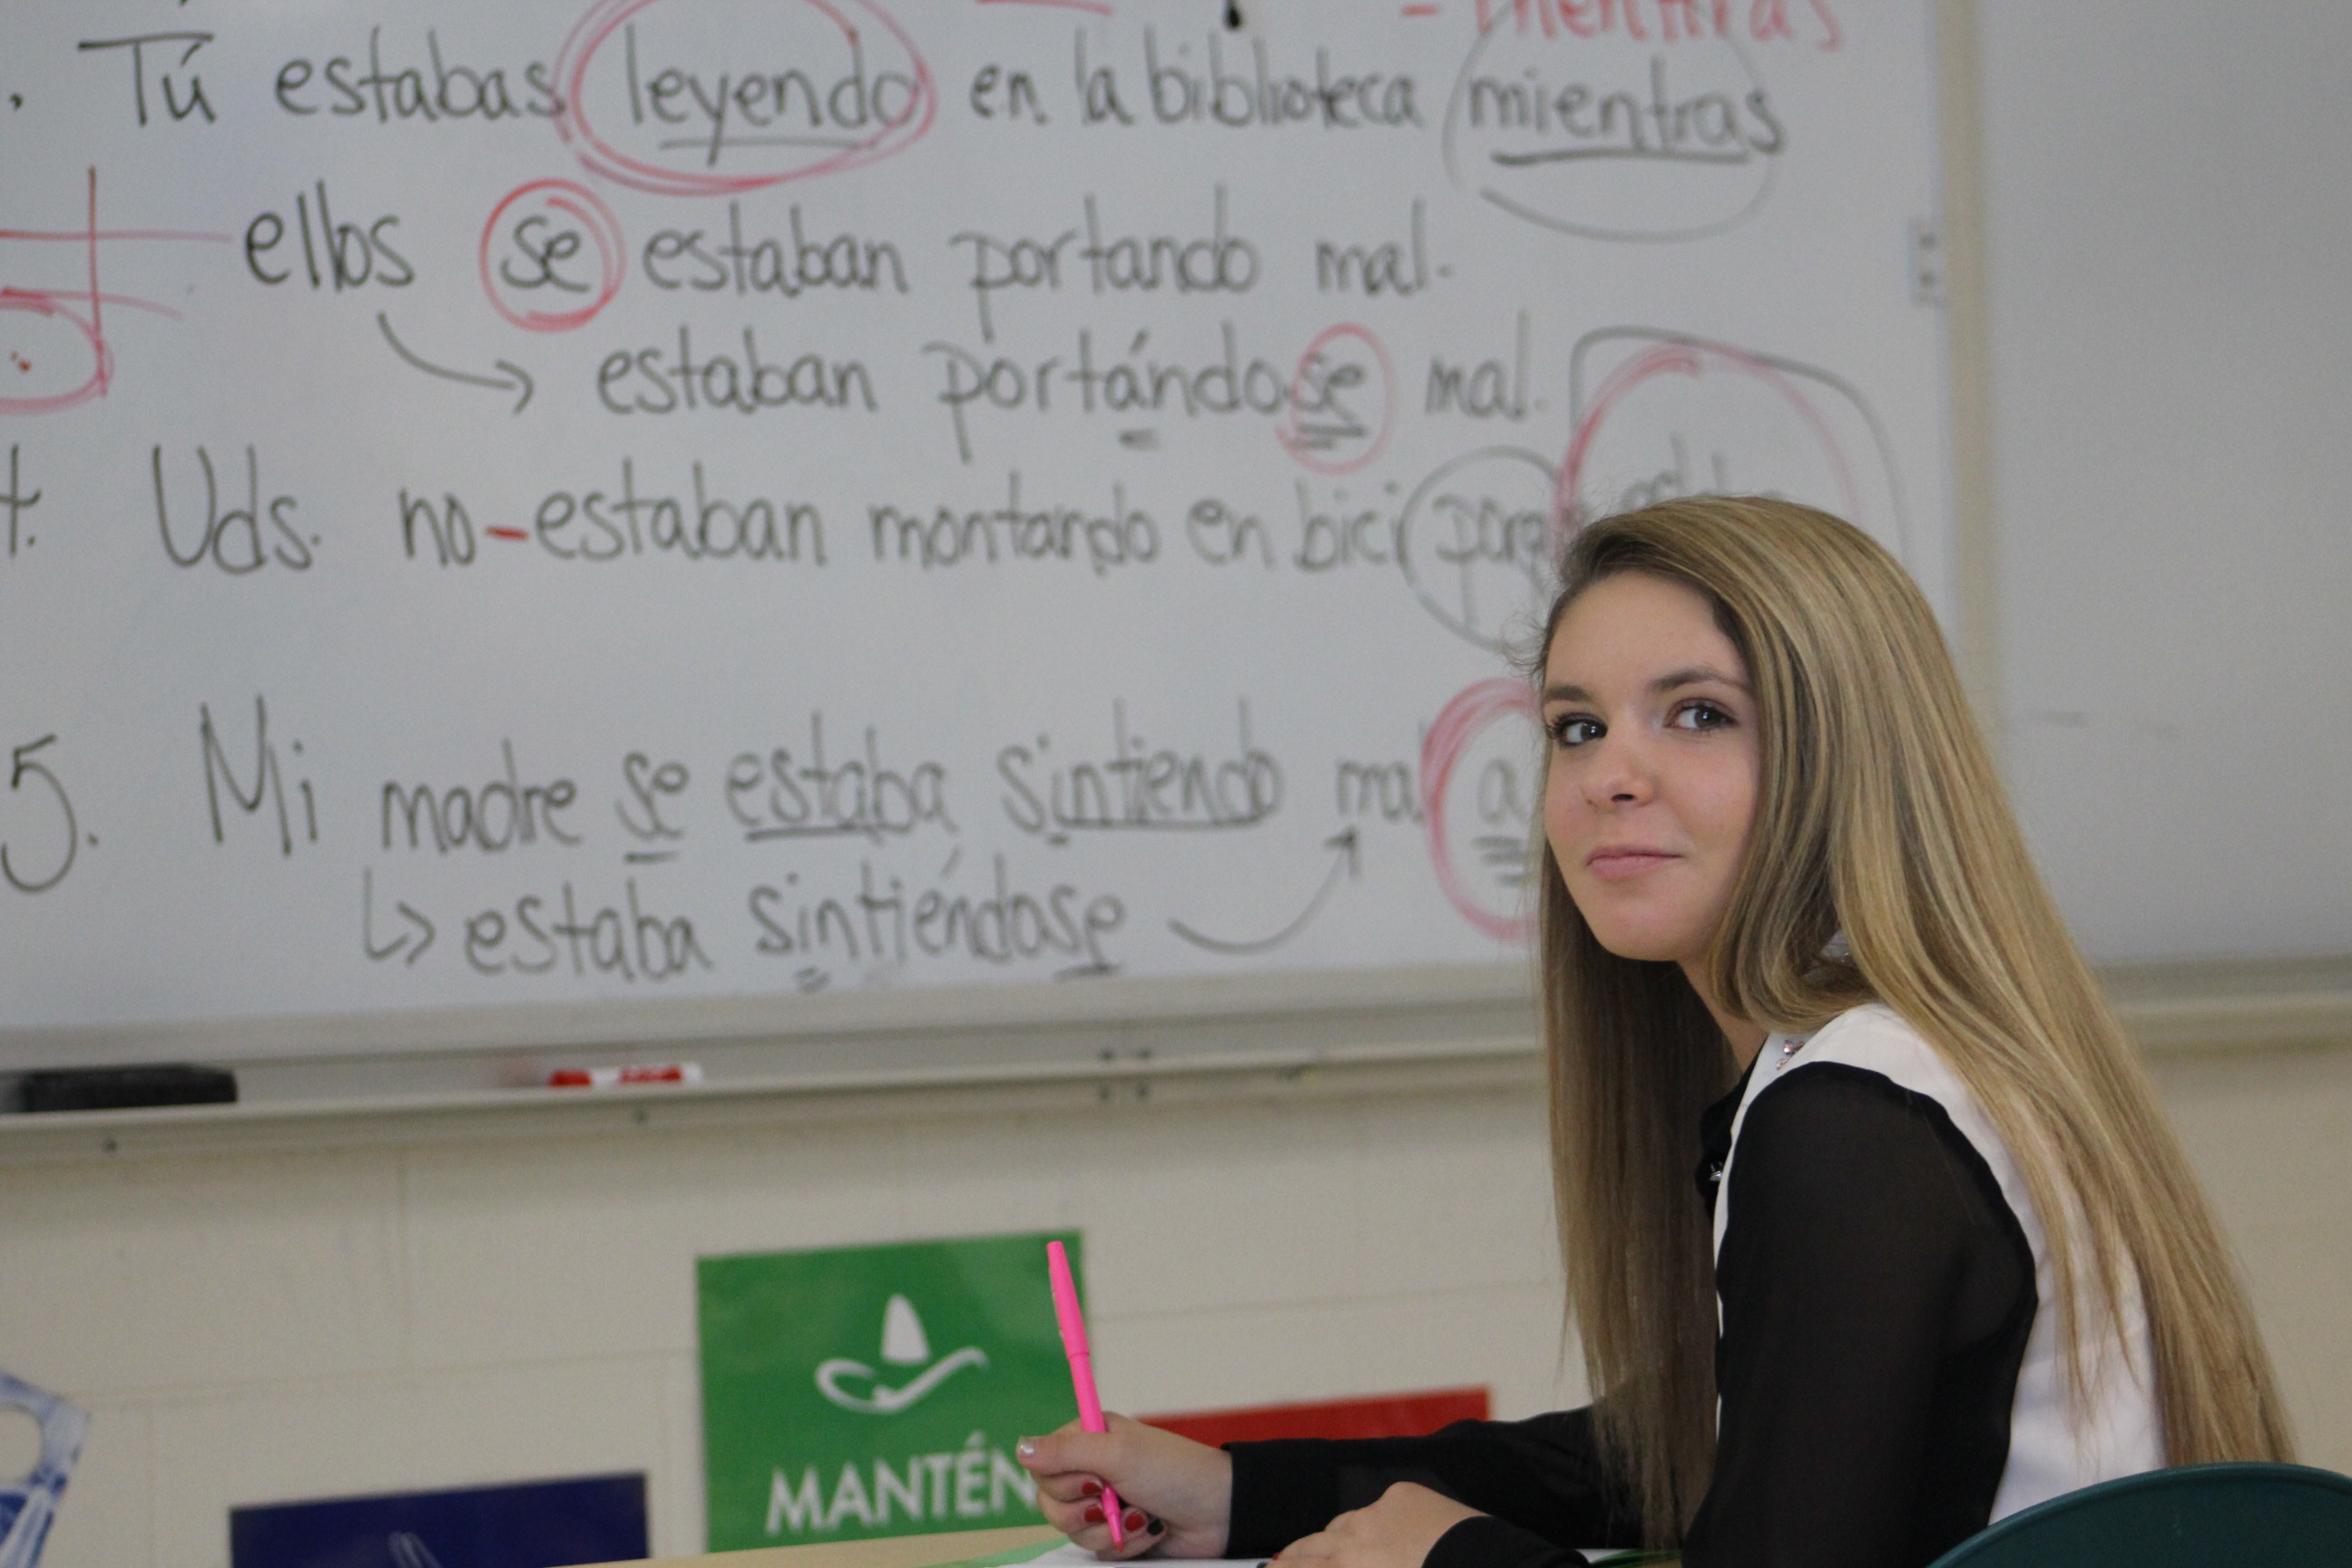 - mientras
. Tú estabas leyendo en la biblioteca mientras
ellos se estaban portando mal.
→ estaban portándose mal.
4. Uds. no-estaban montando en bici
5. Mi madre se estaba sintiendo mal a
↳ estaba sintiéndose
MANTÉN